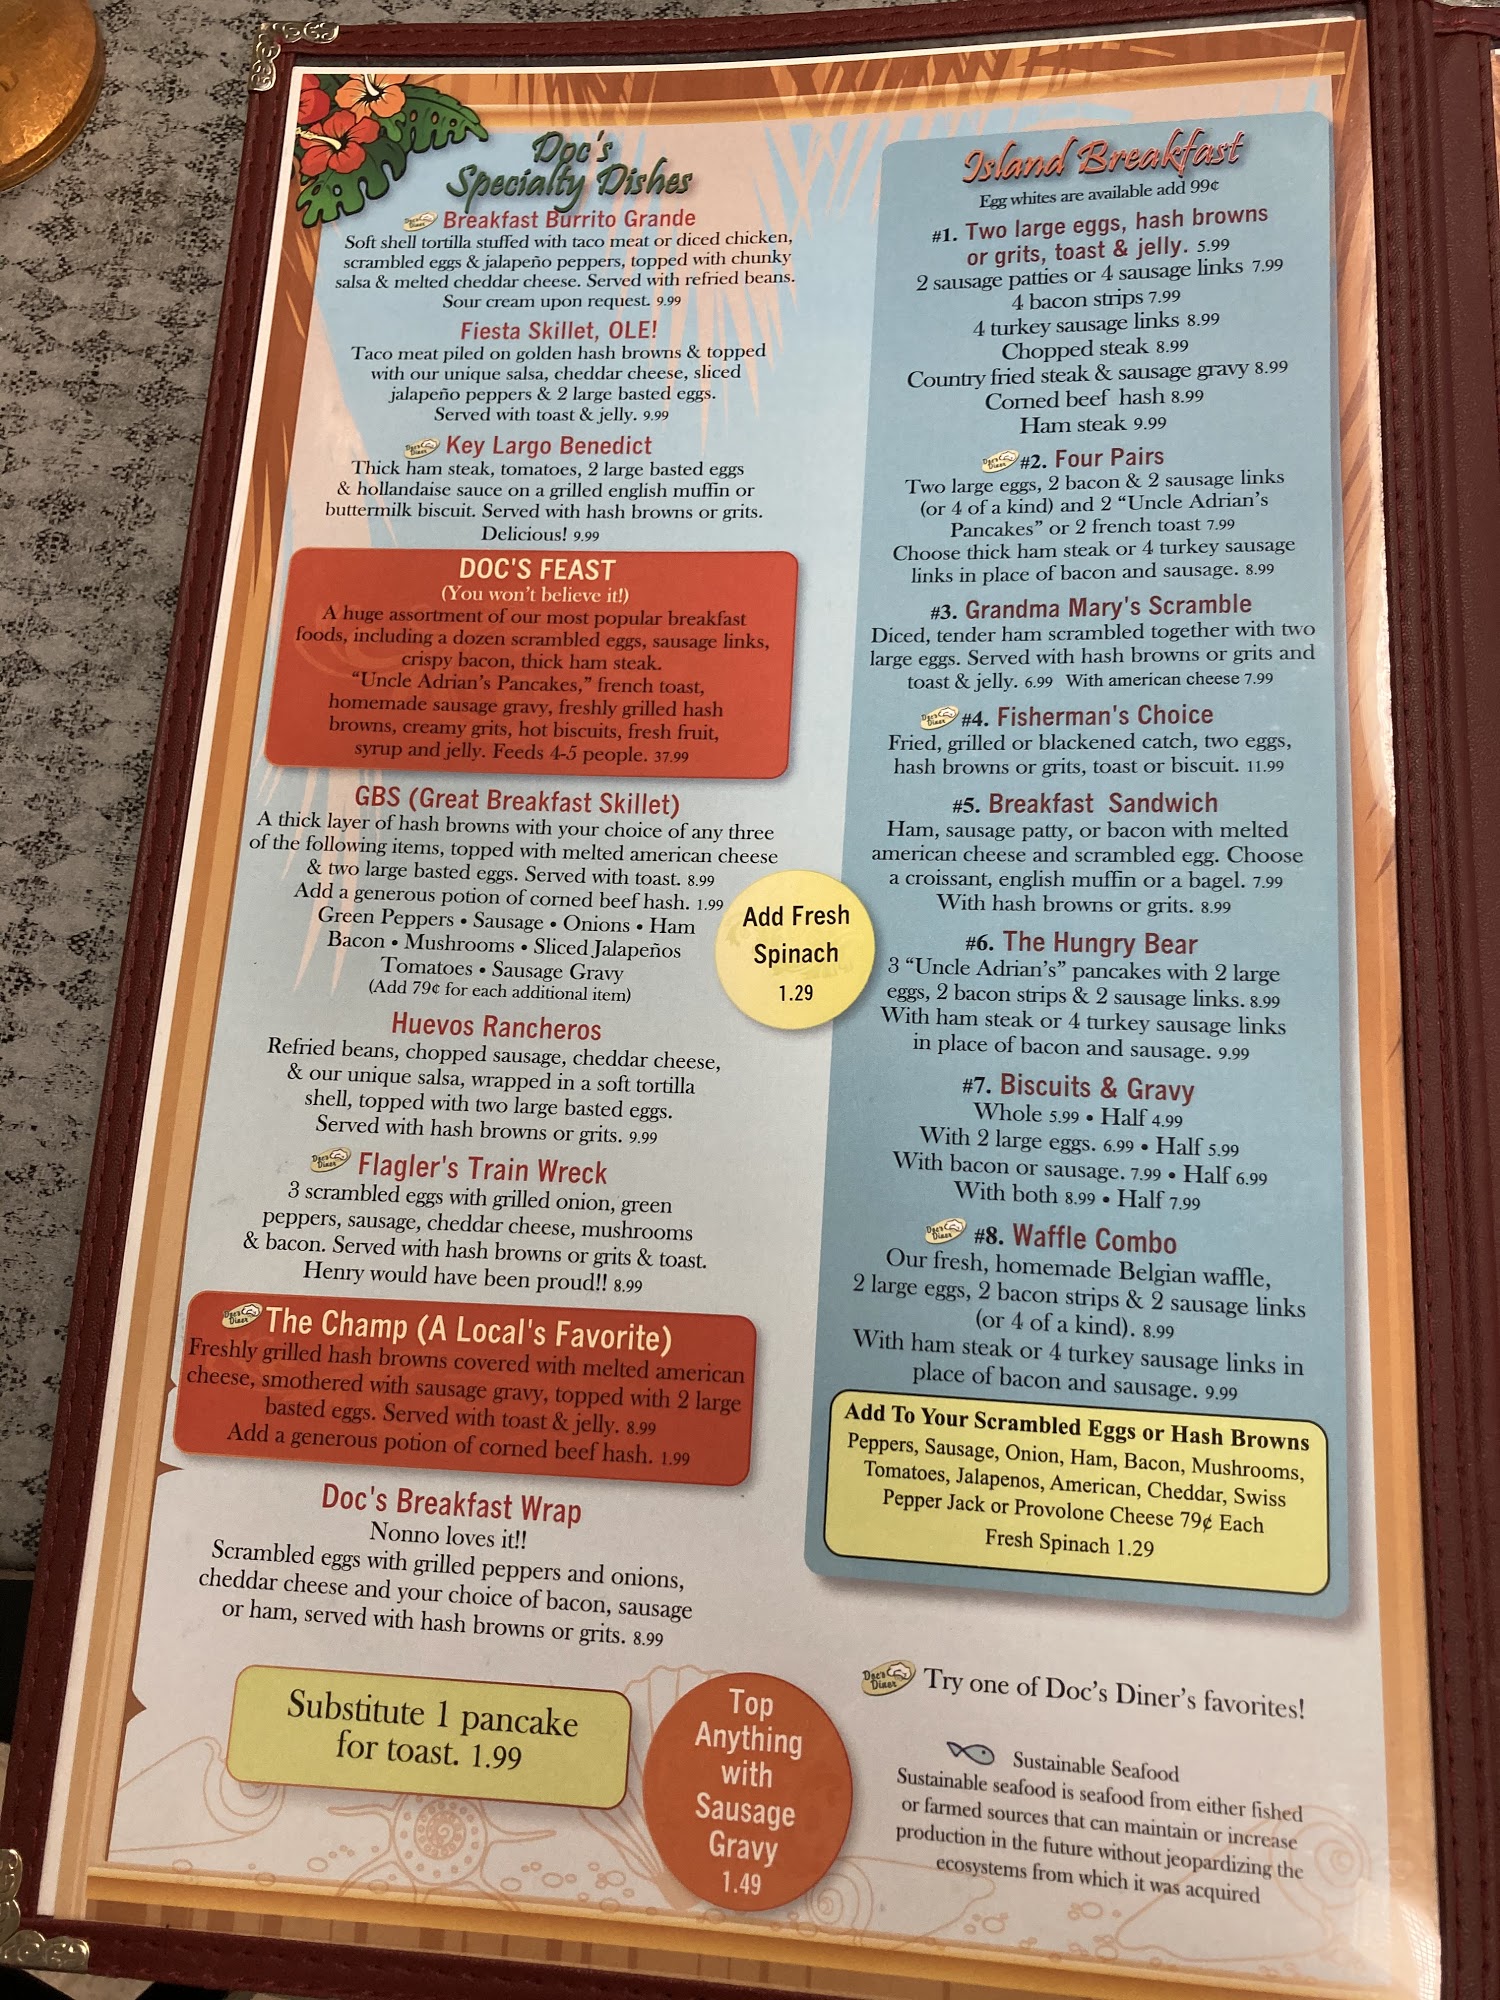 Doc's
Specialty Dishes
Breakfast Burrito Grande
Soft shell tortilla stuffed with taco meat or diced chicken,
scrambled eggs & jalapeño peppers, topped with chunky
salsa & melted cheddar cheese. Served with refried beans.
Sour cream upon request. 9.99
Fiesta Skillet, OLE!
Taco meat piled on golden hash browns & topped
with our unique salsa, cheddar cheese, sliced
jalapeño peppers & 2 large basted eggs.
Served with toast & jelly. 9.99
Key Largo Benedict
Thick ham steak, tomatoes, 2 large basted eggs
& hollandaise sauce on a grilled english muffin or
buttermilk biscuit. Served with hash browns or grits.
Delicious! 9.99
DOC'S FEAST
(You won't believe it!)
A huge assortment of our most popular breakfast
foods, including a dozen scrambled eggs, sausage links,
crispy bacon, thick ham steak.
"Uncle Adrian's Pancakes," french toast,
homemade sausage gravy, freshly grilled hash
browns, creamy grits, hot biscuits, fresh fruit,
syrup and jelly. Feeds 4-5 people. 37.99
GBS (Great Breakfast Skillet)
A thick layer of hash browns with your choice of any three
of the following items, topped with melted american cheese
& two large basted eggs. Served with toast. 8.99
Add a generous potion of corned beef hash. 1.99
Green Peppers • Sausage • Onions • Ham
Bacon • Mushrooms • Sliced Jalapeños
Tomatoes • Sausage Gravy
(Add 79¢ for each additional item)
Add Fresh
Spinach
1.29
Huevos Rancheros
Refried beans, chopped sausage, cheddar cheese,
& our unique salsa, wrapped in a soft tortilla
shell, topped with two large basted eggs.
Served with hash browns or grits. 9.99
Doc's Diner
Flagler's Train Wreck
3 scrambled eggs with grilled onion, green
peppers, sausage, cheddar cheese, mushrooms
& bacon. Served with hash browns or grits & toast.
Henry would have been proud!! 8.99
Doc's Diner
The Champ (A Local's Favorite)
Freshly grilled hash browns covered with melted american
cheese, smothered with sausage gravy, topped with 2 large
basted eggs. Served with toast & jelly. 8.99
Add a generous potion of corned beef hash. 1.99
Doc's Breakfast Wrap
Nonno loves it!!
Scrambled eggs with grilled peppers and onions,
cheddar cheese and your choice of bacon, sausage
or ham, served with hash browns or grits. 8.99
Substitute 1 pancake
for toast. 1.99
Top
Anything
with
Sausage
Gravy
1.49
Island Breakfast
Egg whites are available add 99¢
#1. Two large eggs, hash browns
or grits, toast & jelly. 5.99
2 sausage patties or 4 sausage links 7.99
4 bacon strips 7.99
4 turkey sausage links 8.99
Chopped steak 8.99
Country fried steak & sausage gravy 8.99
Corned beef hash 8.99
Ham steak 9.99
#2. Four Pairs
Two large eggs, 2 bacon & 2 sausage links
(or 4 of a kind) and 2 "Uncle Adrian's
Pancakes" or 2 french toast 7.99
Choose thick ham steak or 4 turkey sausage
links in place of bacon and sausage. 8.99
#3. Grandma Mary's Scramble
Diced, tender ham scrambled together with two
large eggs. Served with hash browns or grits and
toast & jelly. 6.99 With american cheese 7.99
#4. Fisherman's Choice
Fried, grilled or blackened catch, two eggs,
hash browns or grits, toast or biscuit. 11.99
#5. Breakfast Sandwich
Ham, sausage patty, or bacon with melted
american cheese and scrambled egg. Choose
a croissant, english muffin or a bagel. 7.99
With hash browns or grits. 8.99
#6. The Hungry Bear
3 "Uncle Adrian's" pancakes with 2 large
eggs, 2 bacon strips & 2 sausage links. 8.99
With ham steak or 4 turkey sausage links
in place of bacon and sausage. 9.99
#7. Biscuits & Gravy
Whole 5.99 • Half 4.99
With 2 large eggs. 6.99 • Half 5.99
With bacon or sausage. 7.99 • Half 6.99
With both 8.99 • Half 7.99
Doc's Diner
#8. Waffle Combo
Our fresh, homemade Belgian waffle,
2 large eggs, 2 bacon strips & 2 sausage links
(or 4 of a kind). 8.99
With ham steak or 4 turkey sausage links in
place of bacon and sausage. 9.99
Add To Your Scrambled Eggs or Hash Browns
Peppers, Sausage, Onion, Ham, Bacon, Mushrooms,
Tomatoes, Jalapenos, American, Cheddar, Swiss
Pepper Jack or Provolone Cheese 79¢ Each
Fresh Spinach 1.29
Doc's Diner
Try one of Doc's Diner's favorites!
Sustainable Seafood
Sustainable seafood is seafood from either fished
or farmed sources that can maintain or increase
production in the future without jeopardizing the
ecosystems from which it was acquired